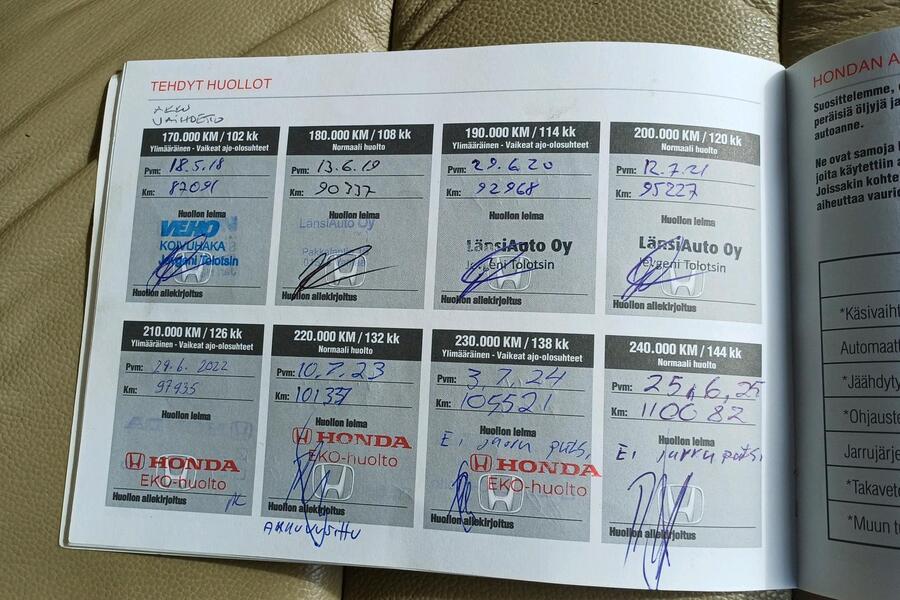 TEHDYT HUOLLOT
AKKU
VAIHDETTU
170.000 KM / 102 kk
Ylimääräinen - Vaikeat ajo-olosuhteet
Pvm: 18.5.18
Km: 87091
Huollon leima
VEHO
KOIVUHAKA
Jevgeni Tolotsin
Huollon allekirjoitus
180.000 KM / 108 kk
Normaali huolto
Pvm: 13.6.19
Km: 90337
Huollon leima
LänsiAuto Oy
Huollon allekirjoitus
190.000 KM / 114 kk
Ylimääräinen - Vaikeat ajo-olosuhteet
Pvm: 29.6.20
Km: 92968
Huollon leima
LänsiAuto Oy
Jevgeni Tolotsin
Huollon allekirjoitus
200.000 KM / 120 kk
Normaali huolto
Pvm: 12.7.21
Km: 95227
Huollon leima
LänsiAuto Oy
Jevgeni Tolotsin
Huollon allekirjoitus
210.000 KM / 126 kk
Ylimääräinen - Vaikeat ajo-olosuhteet
Pvm: 29.6.2022
Km: 97935
Huollon leima
HONDA
EKO-huolto
Huollon allekirjoitus
220.000 KM / 132 kk
Normaali huolto
Pvm: 10.7.23
Km: 101337
Huollon leima
HONDA
EKO-huolto
Huollon allekirjoitus
AKKU UUSITTU
230.000 KM / 138 kk
Ylimääräinen - Vaikeat ajo-olosuhteet
Pvm: 3.7.24
Km: 105521
Huollon leima
Ei jarru puts.
HONDA
EKO-huolto
Huollon allekirjoitus
240.000 KM / 144 kk
Normaali huolto
Pvm: 25.6.25
Km: 110082
Huollon leima
Ei jarru puts.
Huollon allekirjoitus
HONDAN A
Suosittelemme,
peräisiä öljyjä ja
autoanne.
Ne ovat samoja
joita käytettiin a
Joissakin kohte
aiheuttaa vaurio
*Käsivaiht
Automaatt
*Jäähdyty
*Ohjauste
Jarrujärje
*Takaveto
*Muun tu